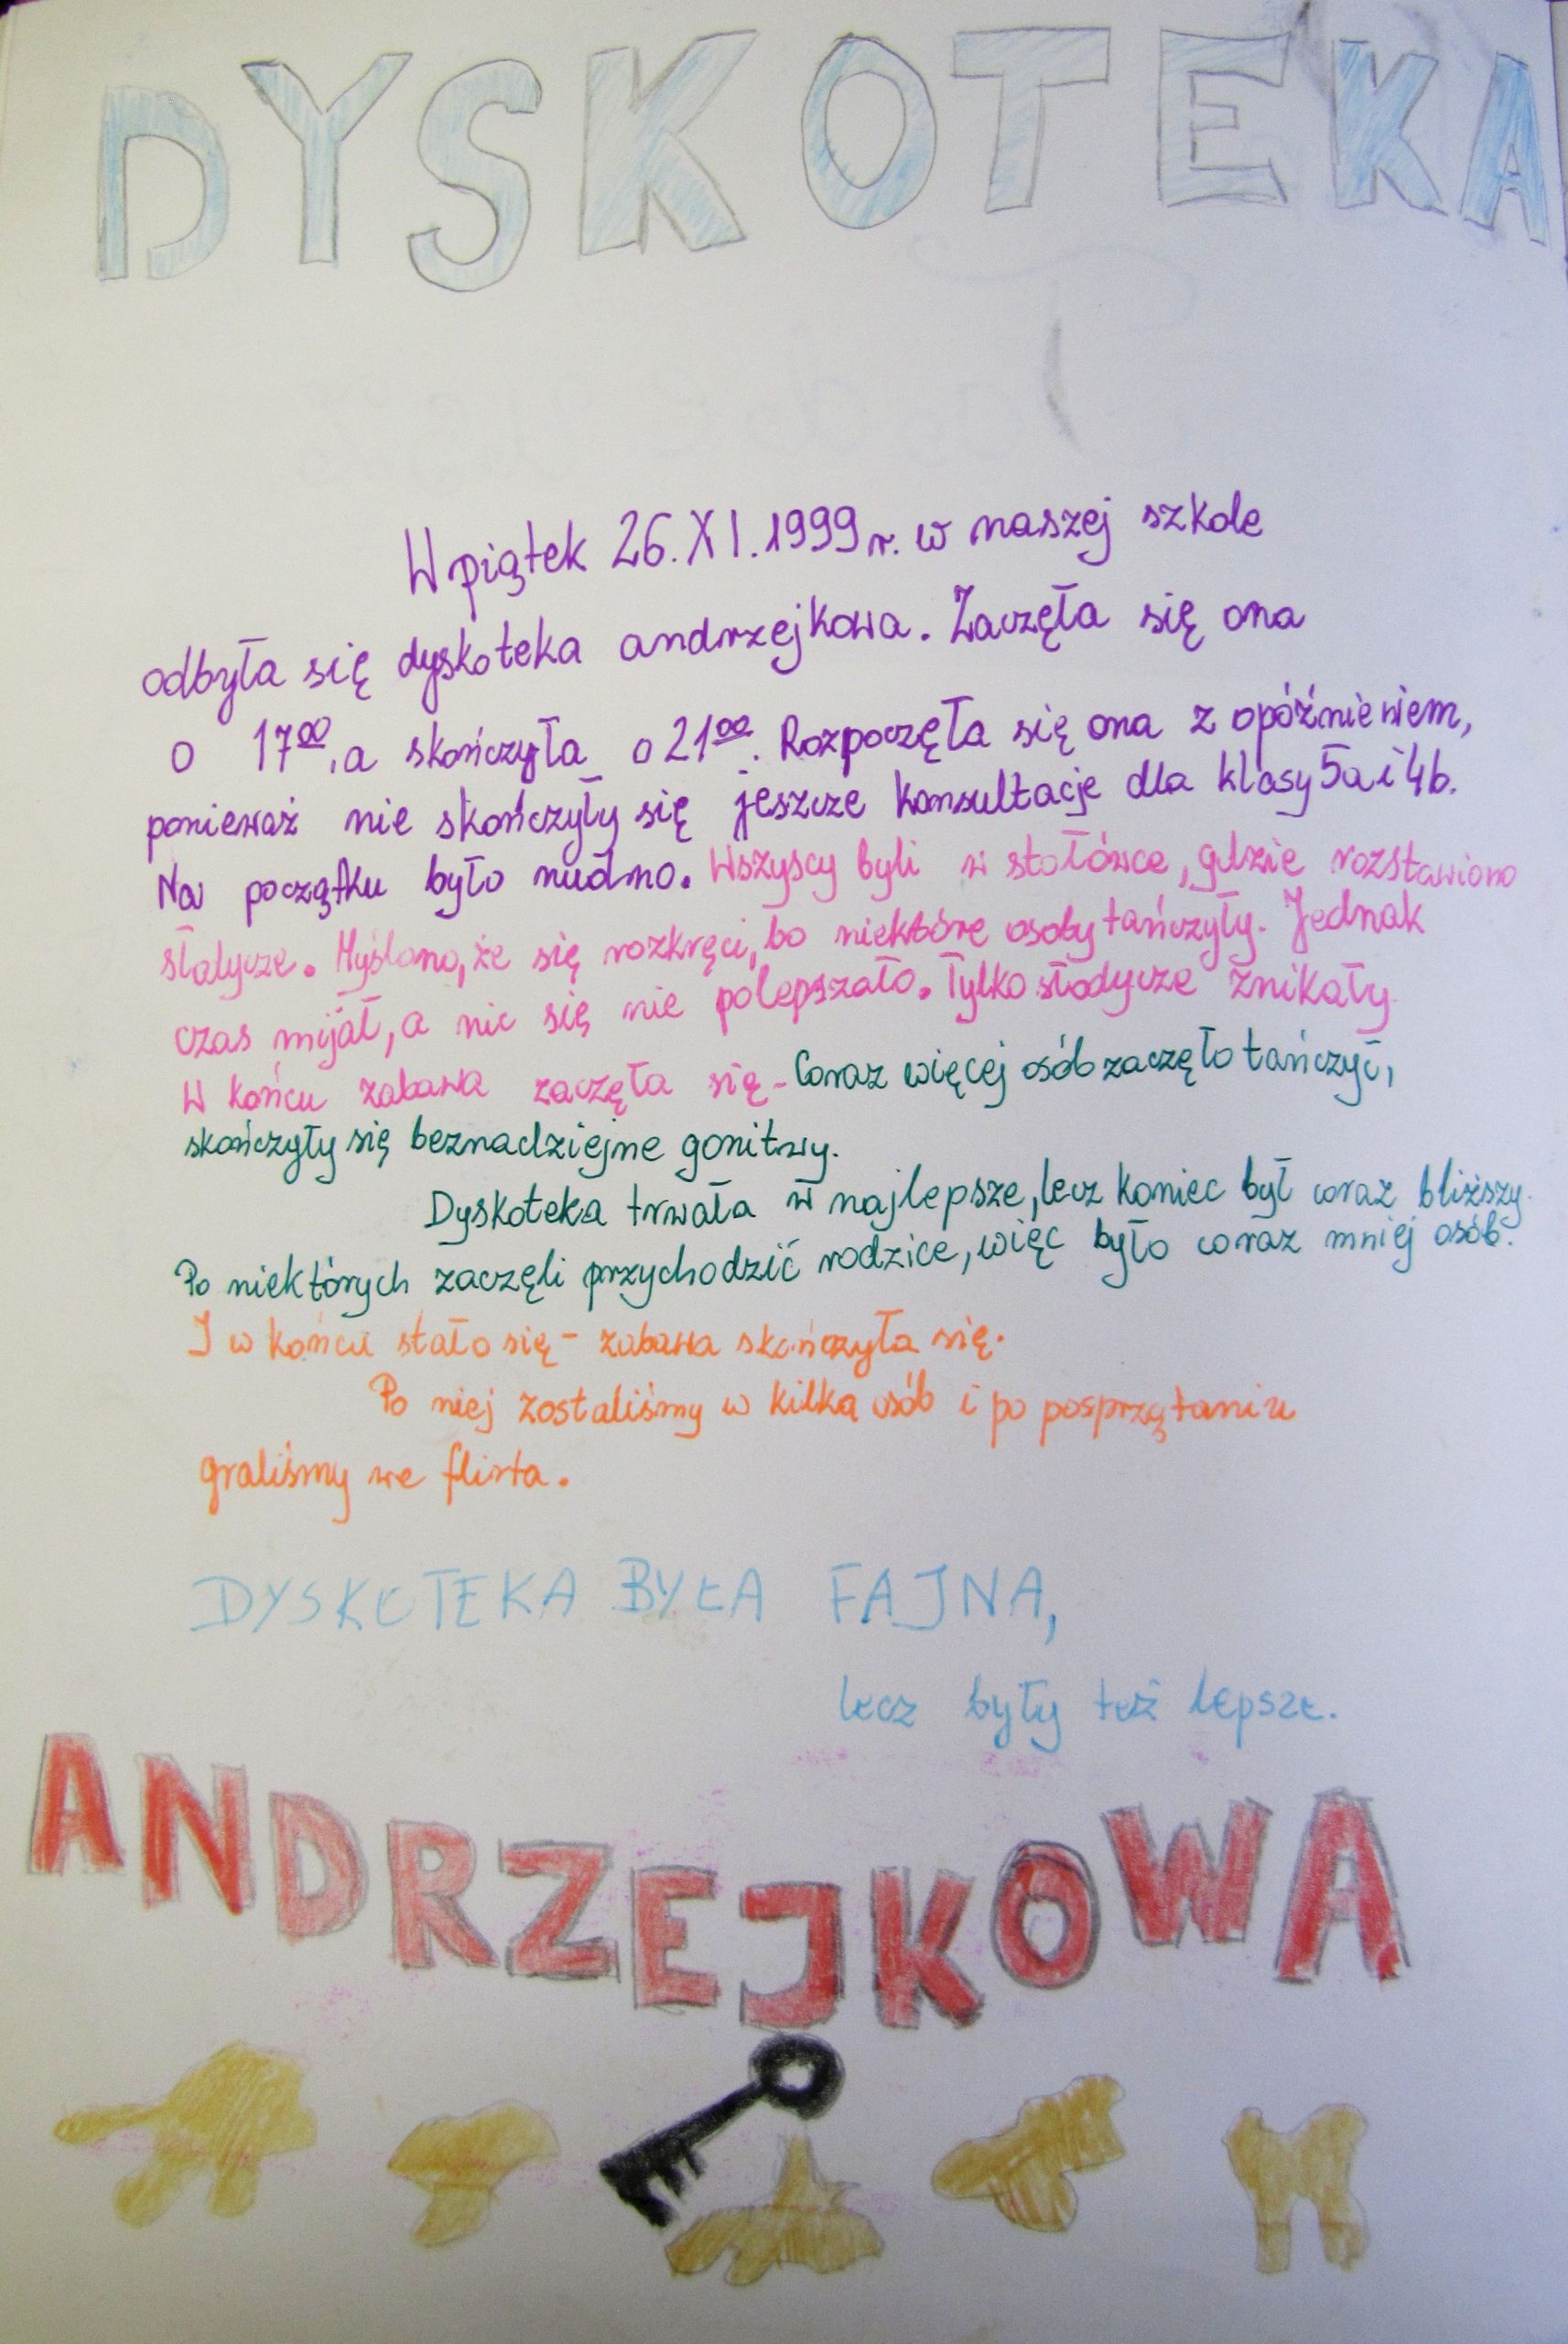 DYSKOTEKA
W piątek 26.XI.1999r. w naszej szkole
odbyła się dyskoteka andrzejkowa. Zaczęła się ona
o 17⁰⁰, a skończyła o 21⁰⁰. Rozpoczęła się ona z opóźnieniem,
ponieważ nie skończyły się jeszcze konsultacje dla klasy 5a i 4b.
Na początku było nudno. Wszyscy byli w stołówce, gdzie rozstawiono
słodycze. Myślano, że się rozkręci, bo niektóre osoby tańczyły. Jednak
czas mijał, a nic się nie polepszało. Tylko słodycze znikały
W końcu zabawa zaczęła się - Coraz więcej osób zaczęło tańczyć,
skończyły się beznadziejne gonitwy.
Dyskoteka trwała w najlepsze, lecz koniec był coraz bliższy.
Po niektórych zaczęli przychodzić rodzice, więc było coraz mniej osób.
I w końcu stało się - zabawa skończyła się.
Po niej zostaliśmy w kilka osób i po posprzątaniu
graliśmy we flirta.
DYSKOTEKA BYŁA FAJNA,
lecz były też lepsze.
ANDRZEJKOWA